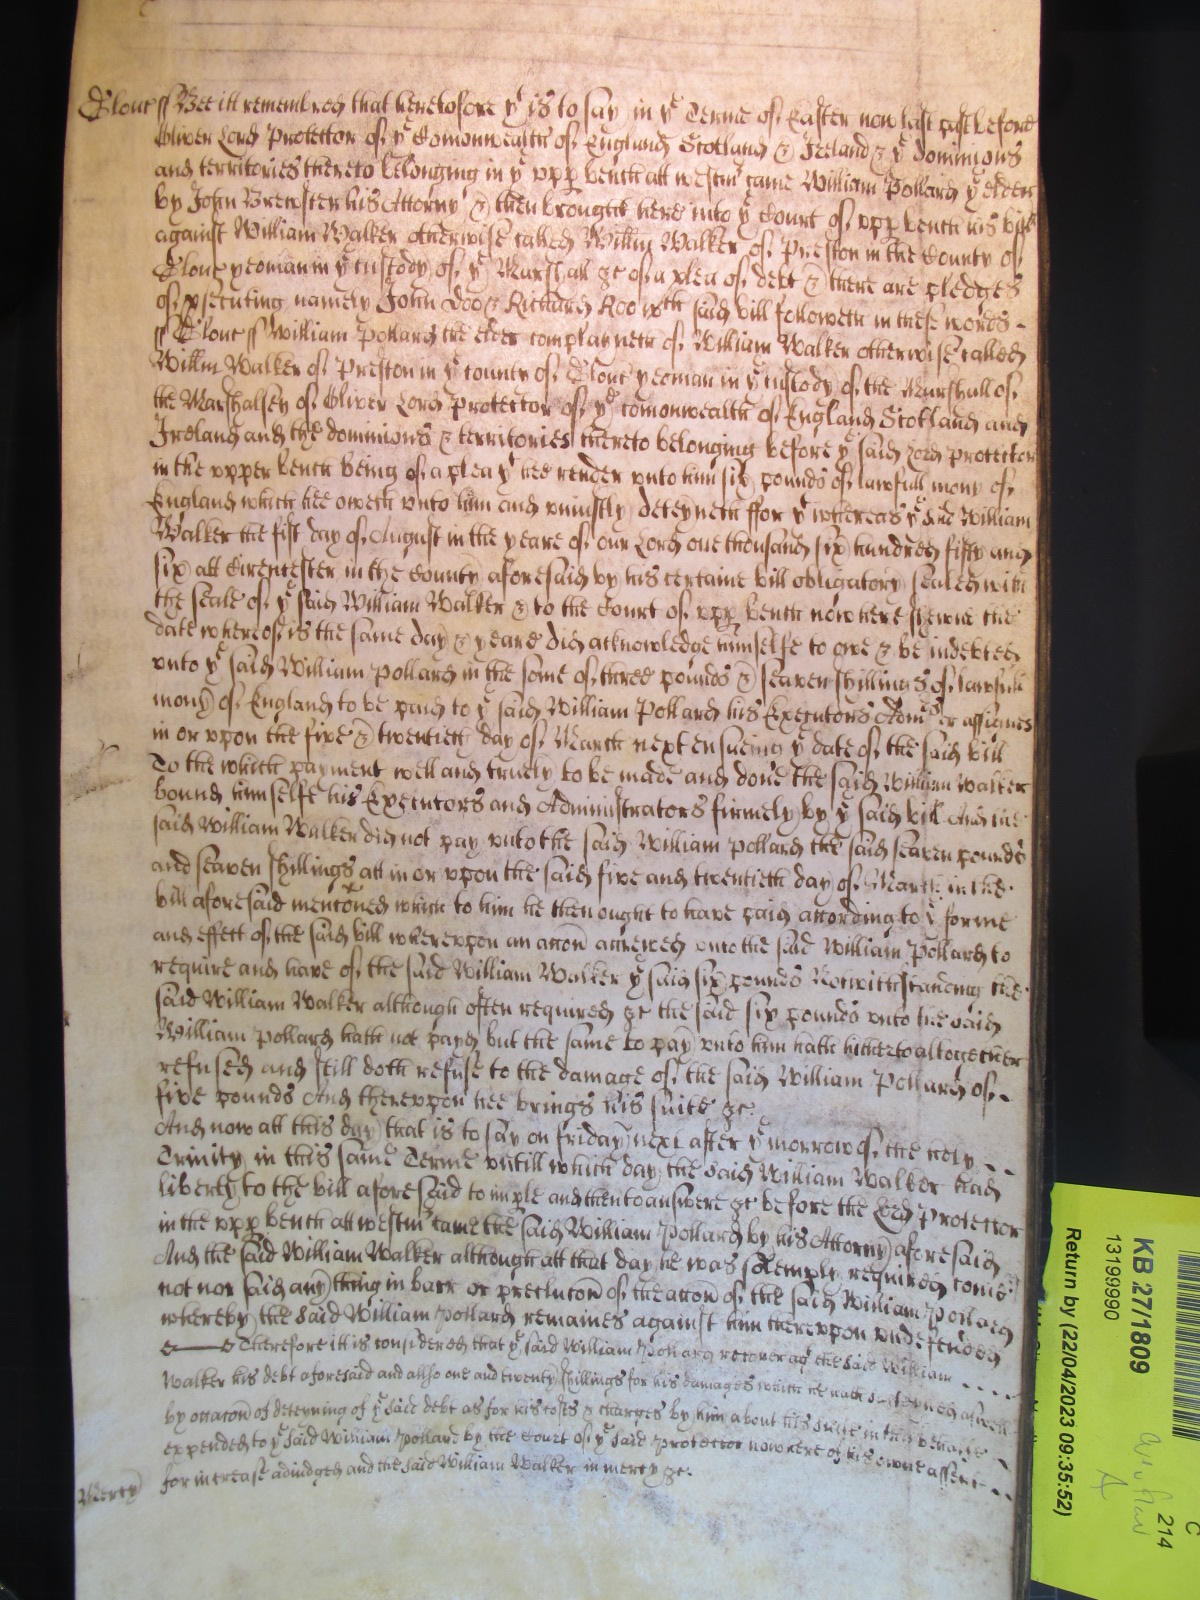 Glouc ss Bee itt remembred that heretofore yt is to say in ye Terme of Easter now last past before
Oliver Lord Protector of ye Comonwealth of England Scotland & Ireland & ye dominions
and territories thereto belonging in ye upp bench att Westmr came William Pollard ye elder
by John Brewster his Attorny & then brought here into ye Court of upp bench his bill
against William Walker otherwise called Willm Walker of Preston in the County of
Glouc yeoman in ye custody of ye Marshall &c of a plea of debt & there are pledges
of psecuting namely John Doo & Richard Roo wch said bill followeth in these words -
ss Glouc ss William Pollard the elder complayneth of William Walker otherwise called
Willm Walker of Preston in ye county of Glouc yeoman in ye custody of the Marshall of
the Marshalsey of Oliver Lord Protector of ye comonwealth of England Scotland and
Ireland and the dominions & territories thereto belonging before ye said Lord Protector
in the upper bench being of a plea yt hee render unto him six pounds of lawfull mony of
England which hee oweth unto him and uniustly deteyneth ffor yt whereas ye said William
Walker the fist day of August in the yeare of our Lord one thousand six hundred fifty and
six att Cirencester in the County aforesaid by his certaine bill obligatory sealed with
the seale of ye said William Walker & to the Court of upp bench now here shewne the
date whereof is the same day & yeare did acknowledge himselfe to owe & be indebted
unto ye said William Pollard in the some of three pounds & seaven shillings of lawfull
mony of England to be paid to ye said William Pollard his Executors Admrs or assignes
in or upon the five & twentieth day of March next ensueing ye date of the said bill
To the which payment well and truely to be made and done the said William Walker
bound himselfe his Executors and Administrators firmely by ye said bill And the
said William Walker did not pay unto the said William Pollard the said seaven pounds
and seaven shillings att in or upon the said five and twentieth day of March in the
bill aforesaid mentoned which to him he then ought to have paid according to ye forme
and effect of the said bill whereupon an accon accrewed unto the said William Pollard to
require and have of the said William Walker ye said six pounds Notwithstanding the
said William Walker although often required &c the said six pounds unto the said
William Pollard hath not payd but the same to pay unto him hath hitherto altogether
refused and still doth refuse to the damage of the said William Pollard of -
five pounds And thereupon hee brings his suite &c.
And now att this day that is to say on friday next after ye morrow of the holy - -
Trinity in this same Terme untill which day the said William Walker had
liberty to the bill aforesaid to imple and then to answere &c before the Lord Protector
in the upp bench att Westmr came the said William Pollard by his Attorny aforesaid
And the said William Walker although att that day he was solemply required come
not nor said any thing in barr or preclucon of the accon of the said William Pollard
whereby the said William Pollard remaines against him thereupon undefended
Therefore itt is considered that ye said William Pollard recover agt the said William
Walker his debt aforesaid and allso one and twenty shillings for his damages which he hath susteyned aswell
by occacon of deteyning of ye said debt as for his costs & charges by him about his suite in this behalfe
expended to ye said William Pollard by the Court of ye said Protector now here of his owne assent - -
for increase adiudged and the said William Walker in mercy &c.
Mercy
KB 27/1809
13199990
Return by (22/04/2023 09:35:52)
C
214
A